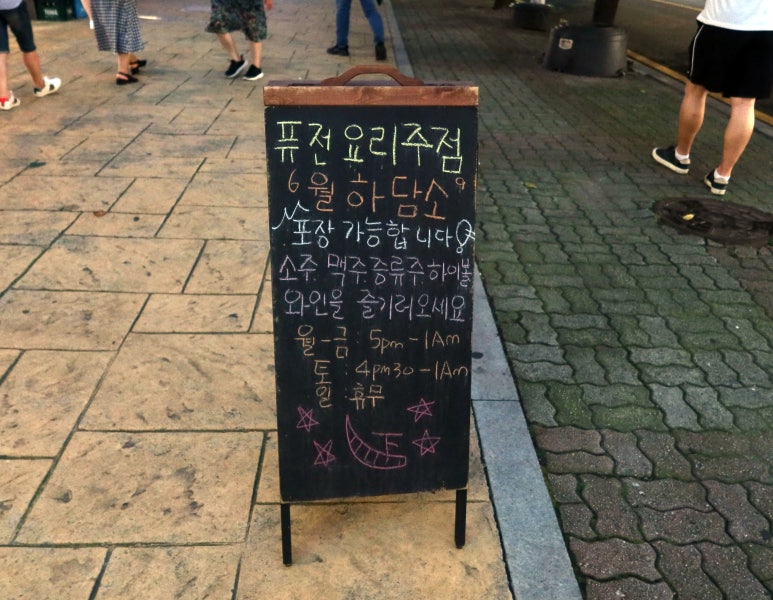 퓨전 요리주점
6월하담소
포장 가능합니다
소주.맥주.증류주.하이볼
와인을 즐기러오세요
월-금 : 5pm-1Am
토 : 4pm30-1Am
일 : 휴무